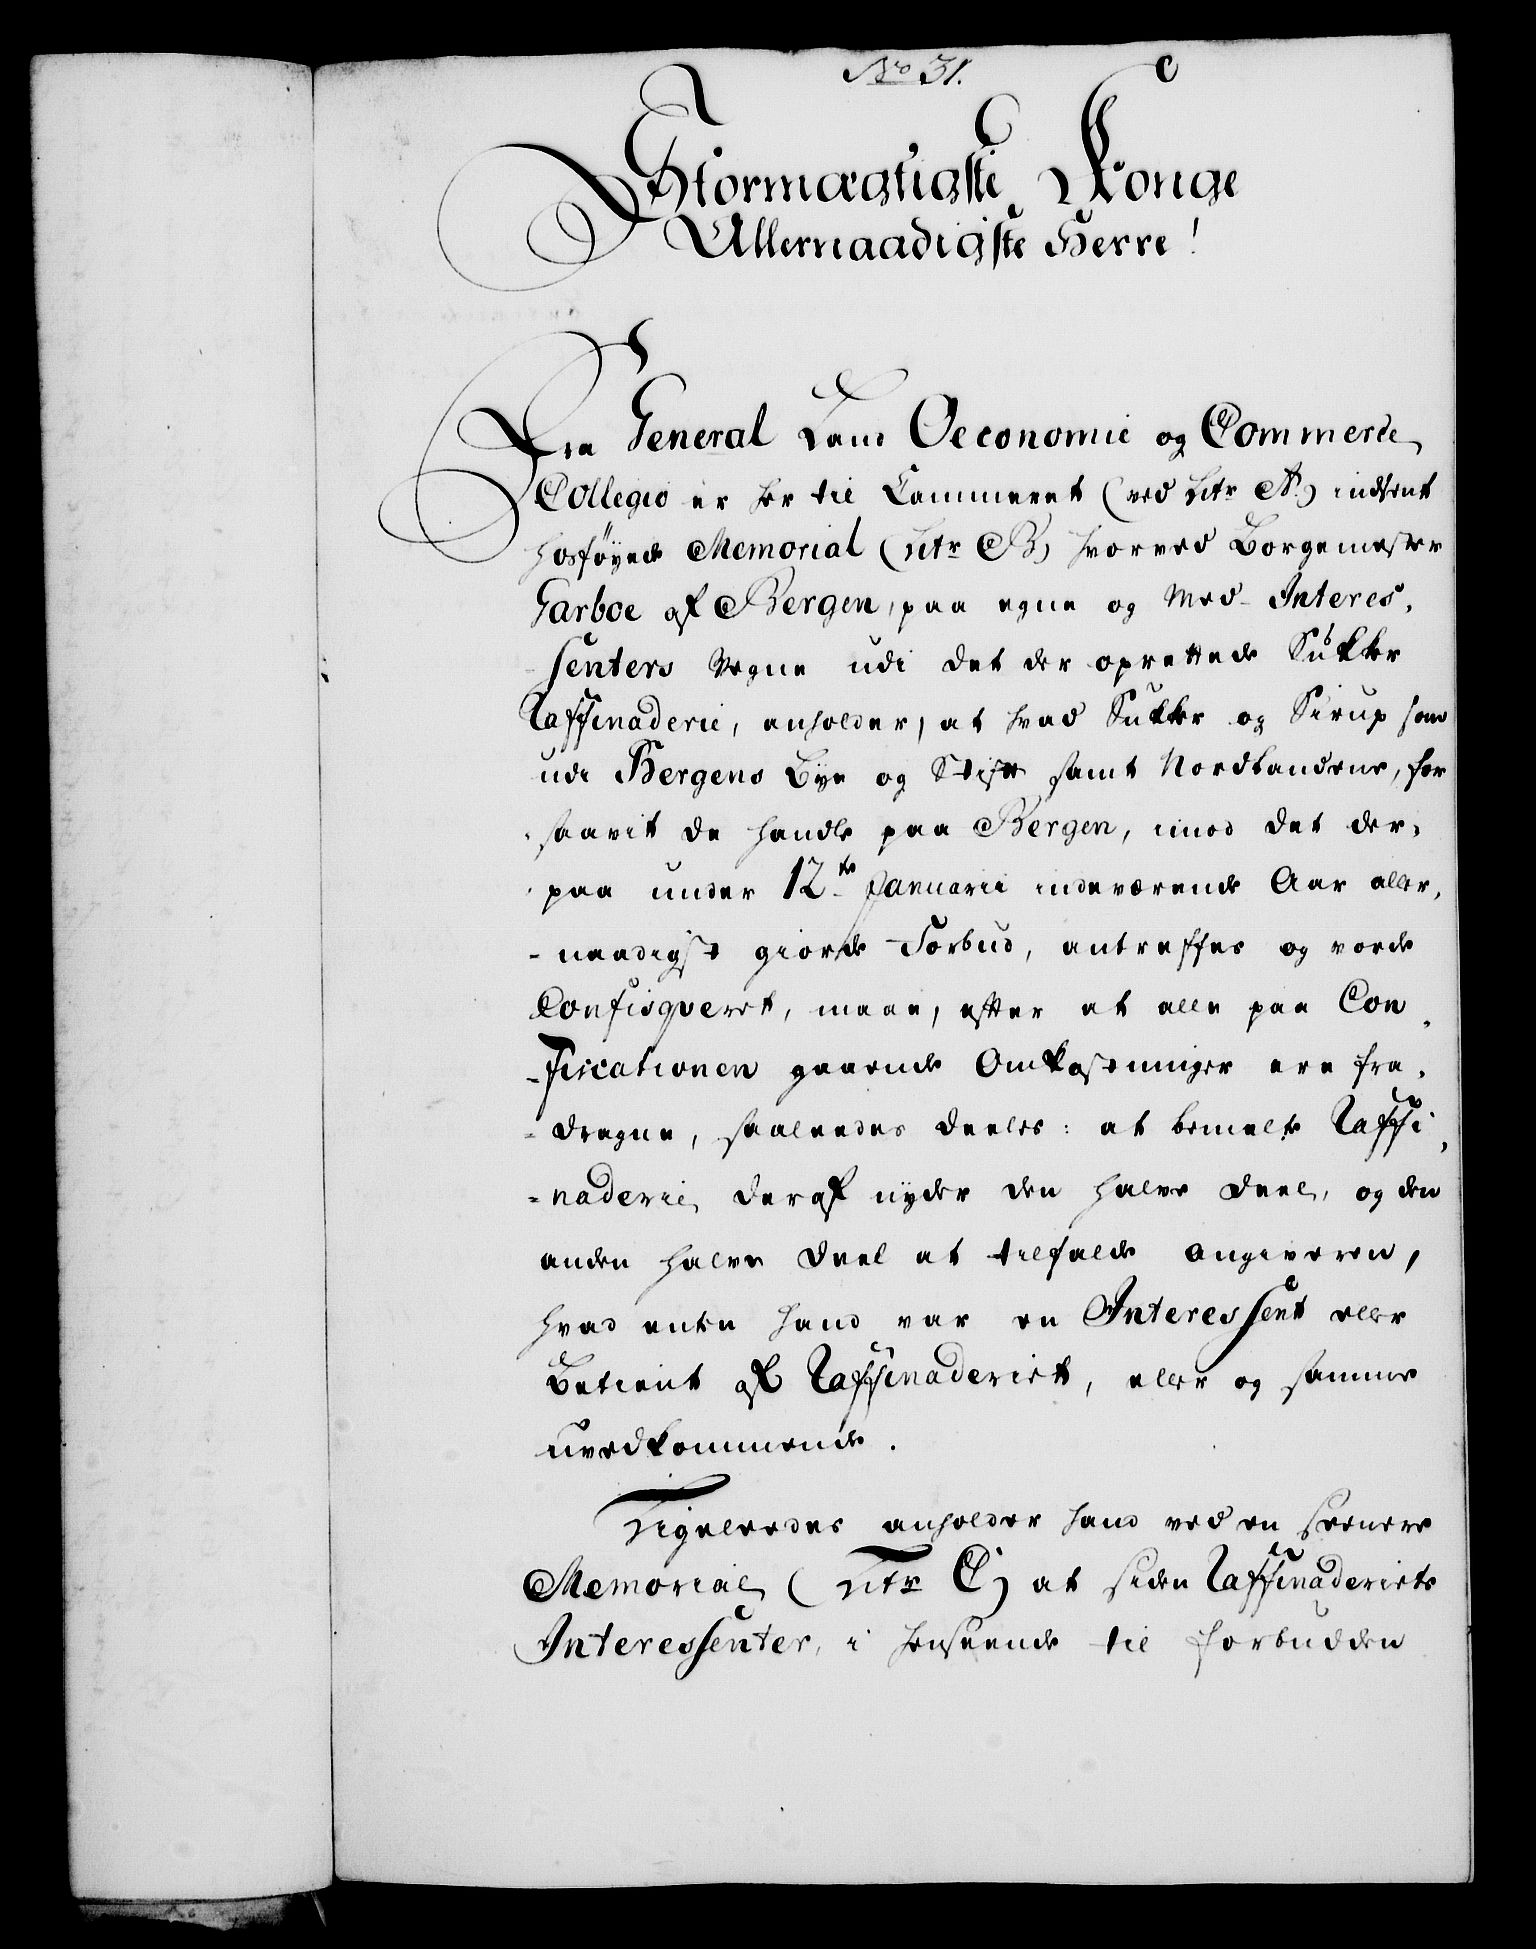 No 31.
Stormægtigste Konge
Allernaadigste Herre!
Fra General Land Oeconomie og Commerce
Collegio er her til Cammeret (ved Litr A.) indsent
hosføyede Memorial (Litr B) hvorved Borgemester
Garboe af Bergen, paa egne og Med- Interes-
senters Vegne udi det der oprettede Sukker
Raffinaderie, anholder, at hvad Sukker og Sirup som
udi Bergens Bye og Stift samt Nordlandene, for
saavit de handle paa Bergen, imod det der-
paa under 12te Januarii indeværende Aar aller-
-naadigst giorde Forbud, antreffes og vorde
Confisqveret, maae, efter at alle paa Con-
-fiscationen gaaende Omkostninger ere fra-
-dragne, saaleedes deeles: at bemelte Raffi-
-naderie deraf nyder den halve deel, og den
anden halve deel at tilfalde Angiveren,
hvad enten hand var en Interessent eller
Betient af Raffinaderiet, eller og samme
uvedkommende.
Ligeleedes anholder hand ved en seenere
Memorial (Litr C) at siden Raffinaderiets
Interessenter, i henseende til forbudden